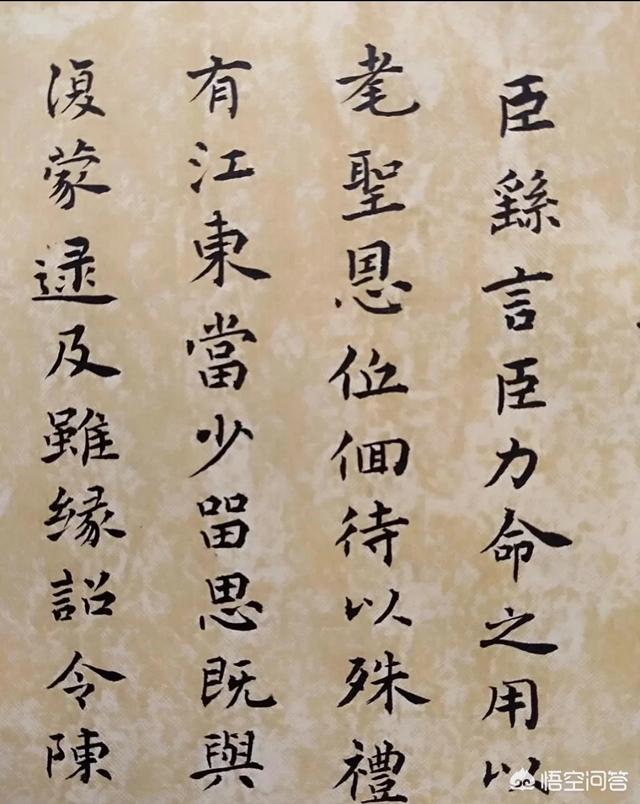 臣繇言臣力命之用以
耄聖恩低佪待以殊禮
有江東當少留思既與
復蒙逮及雖緣詔令陳
悟空问答